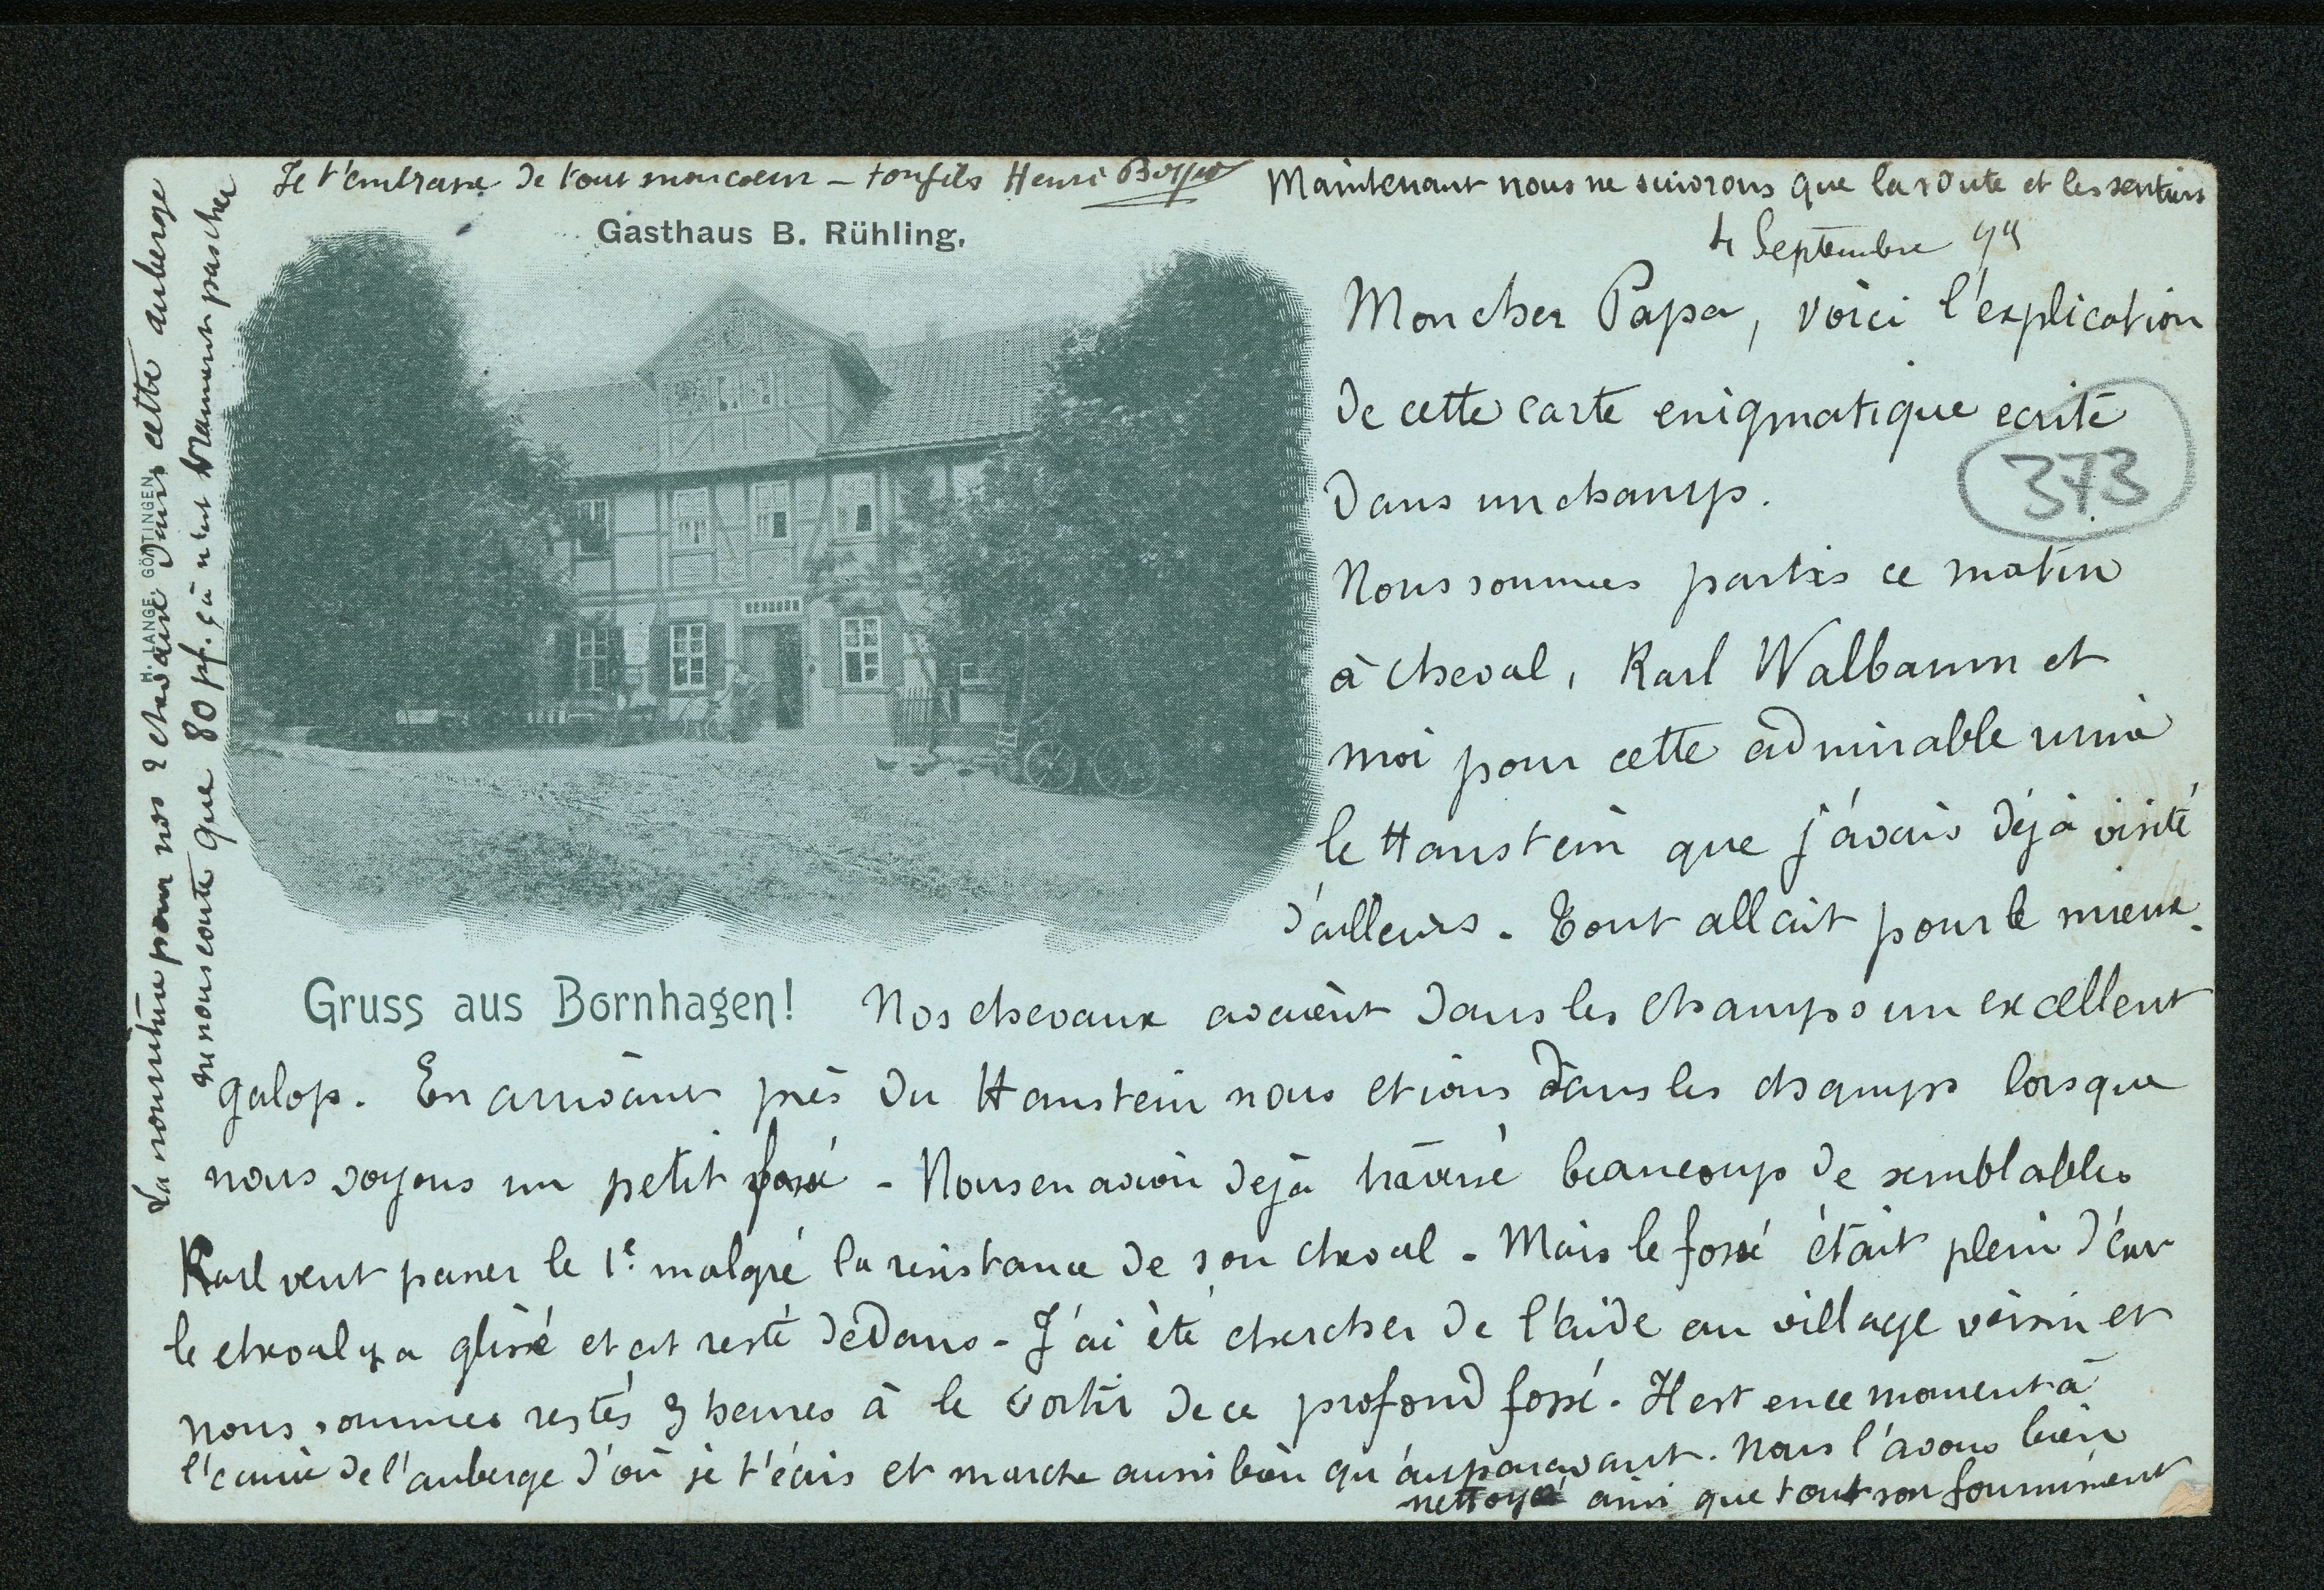 Je t'embrasse de tout mon coeur – ton fils Henri
Maintenant nous ne suivrons que la route et les sentiers
Gasthaus B. Rühling.
4 Septembre
Mon cher Papa, voici l'explication
de cette carte enigmatique ecrite
dans un champ.
373
Nous sommes partis ce matin
à cheval, Karl Walbaum et
moi pour cette admirable ruine
le Hanstein que j'avais déjà visité
d'ailleurs. Tout allait pour le mieux.
Gruss aus Bornhagen!
Nos chevaux avaient dans les champs un excellent
galop. En arrivant près du Hanstein nous etions dans les champs lorsque
nous voyons un petit fossé – Nous en avion dejà traversé beaucoup de semblables
Karl veut passer le 1e malgré la resistance de son cheval – Mais le fossé était plein d'eau
le cheval y a glissé et est resté dedans – J'ai été chercher de l'aide au village voisin et
nous sommes restés 3 heures à le sortir de ce profond fossé. Il est en ce moment à
l'écurie de l'auberge d'où je t'écris et marche aussi bien qu'auparavant. Nous l'avons bien
nettoyé ainsi que tout son fourniment
La nourriture pour nos 2 chevaux dans cette auberge
ne nous coute que 80 pf. çà n'est vraiment pas cher
H. LANGE, GÖTTINGEN.